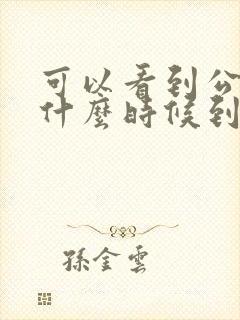 可以看到公
什麼時候到
孫金雲